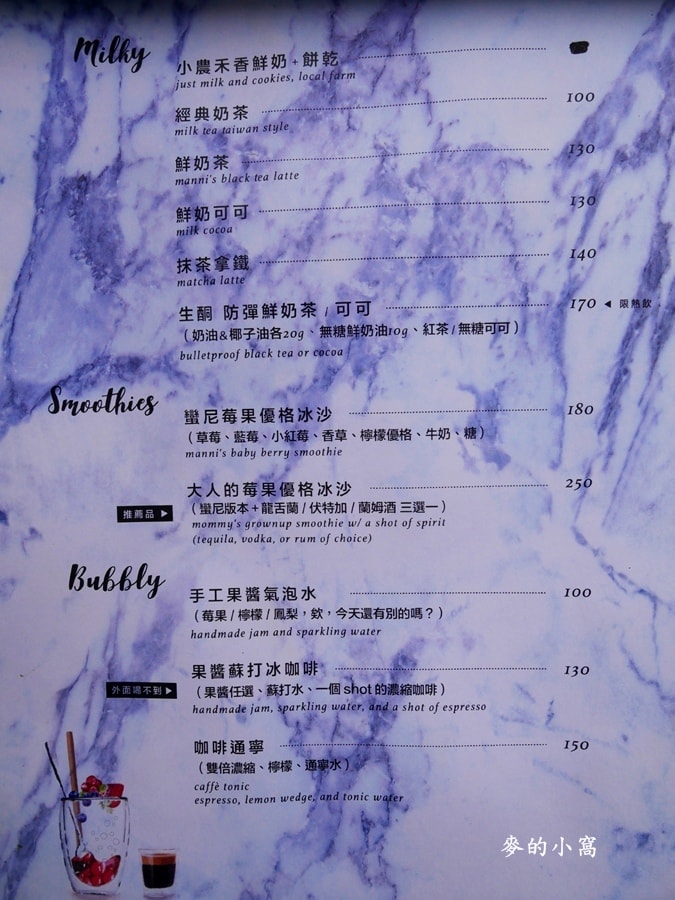 Milky
小農禾香鮮奶+餅乾
just milk and cookies, local farm
經典奶茶 100
milk tea taiwan style
鮮奶茶 130
manni's black tea latte
鮮奶可可 130
milk cocoa
抹茶拿鐵 140
matcha latte
生酮 防彈鮮奶茶 / 可可 170 ◀ 限熱飲
（奶油&椰子油各20g、無糖鮮奶油10g、紅茶 / 無糖可可）
bulletproof black tea or cocoa
Smoothies
蠻尼莓果優格冰沙 180
（草莓、藍莓、小紅莓、香草、檸檬優格、牛奶、糖）
manni's baby berry smoothie
大人的莓果優格冰沙 250
推薦品 ▶ （蠻尼版本+龍舌蘭 / 伏特加 / 蘭姆酒 三選一）
mommy's grownup smoothie w/ a shot of spirit
(tequila, vodka, or rum of choice)
Bubbly
手工果醬氣泡水 100
（莓果 / 檸檬 / 鳳梨，欸，今天還有別的嗎？）
handmade jam and sparkling water
果醬蘇打冰咖啡 130
外面喝不到 ▶ （果醬任選、蘇打水、一個 shot 的濃縮咖啡）
handmade jam, sparkling water, and a shot of espresso
咖啡通寧 150
（雙倍濃縮、檸檬、通寧水）
caffè tonic
espresso, lemon wedge, and tonic water
麥的小窩